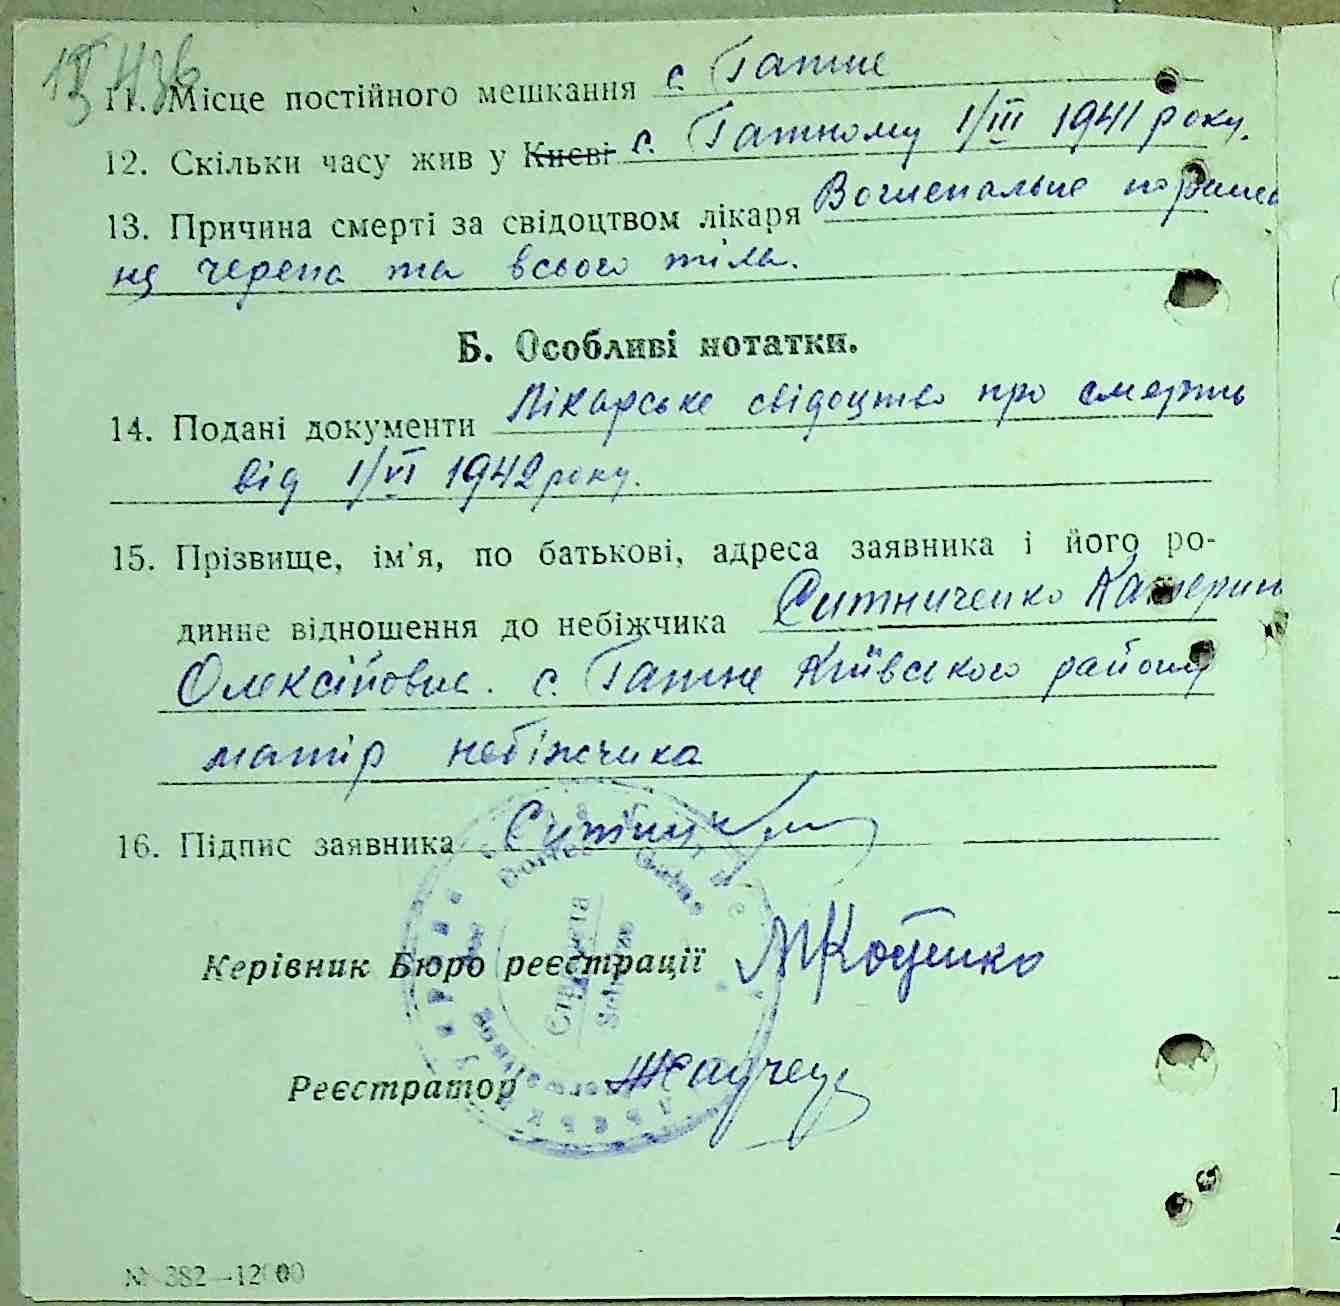 11. Місце постійного мешкання с. Гатне
12. Скільки часу жив у Києві с. Гатному 1/III 1941 року.
13. Причина смерті за свідоцтвом лікаря Вогнепальне
черепа та всього тіла.
Б. Особливі нотатки.
14. Подані документи Лікарське свідоцтво про смерть
від 1/VI 1942 року.
15. Прізвище, ім'я, по батькові, адреса заявника і його ро-
динне відношення до небіжчика Ситниченко Катерин
Олексіївна. с. Гатне Київського району
матір небіжчика
16. Підпис заявника
Керівник Бюро реєстрації
Староста
Реєстратор
№ 382—12000